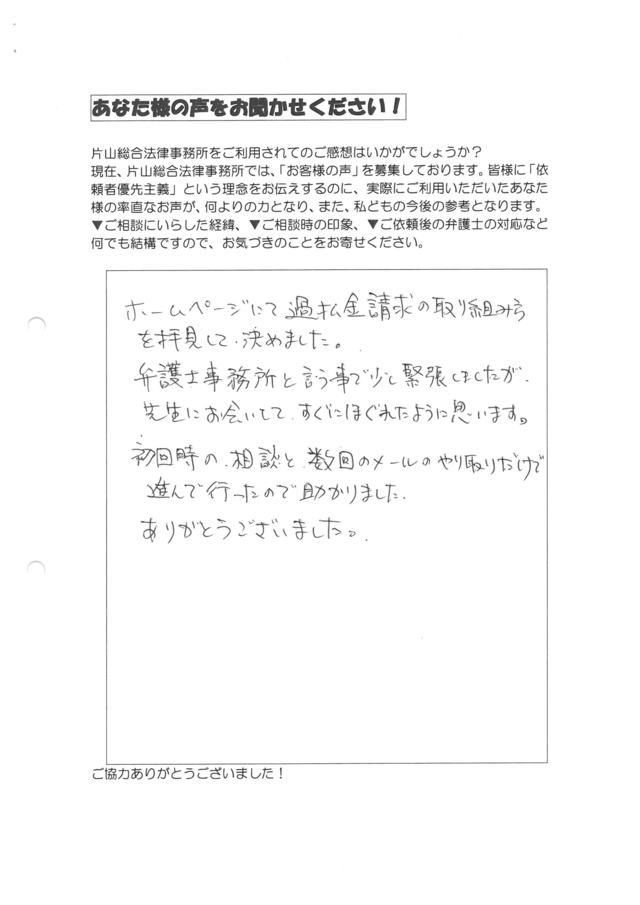 あなた様の声をお聞かせください！
片山総合法律事務所をご利用されてのご感想はいかがでしょうか？
現在、片山総合法律事務所では、「お客様の声」を募集しております。皆様に「依
頼者優先主義」という理念をお伝えするのに、実際にご利用いただいたあなた
様の率直なお声が、何よりの力となり、また、私どもの今後の参考となります。
▼ご相談にいらした経緯、▼ご相談時の印象、▼ご依頼後の弁護士の対応など
何でも結構ですので、お気づきのことをお寄せください。
ホームページにて過払金請求の取り組み方
を拝見して決めました。
弁護士事務所と言う事で少し緊張しましたが、
先生にお会いして、すぐにほぐれたように思います。
初回時の相談と数回のメールのやり取りだけで
進んで行ったので助かりました。
ありがとうございました。
ご協力ありがとうございました！